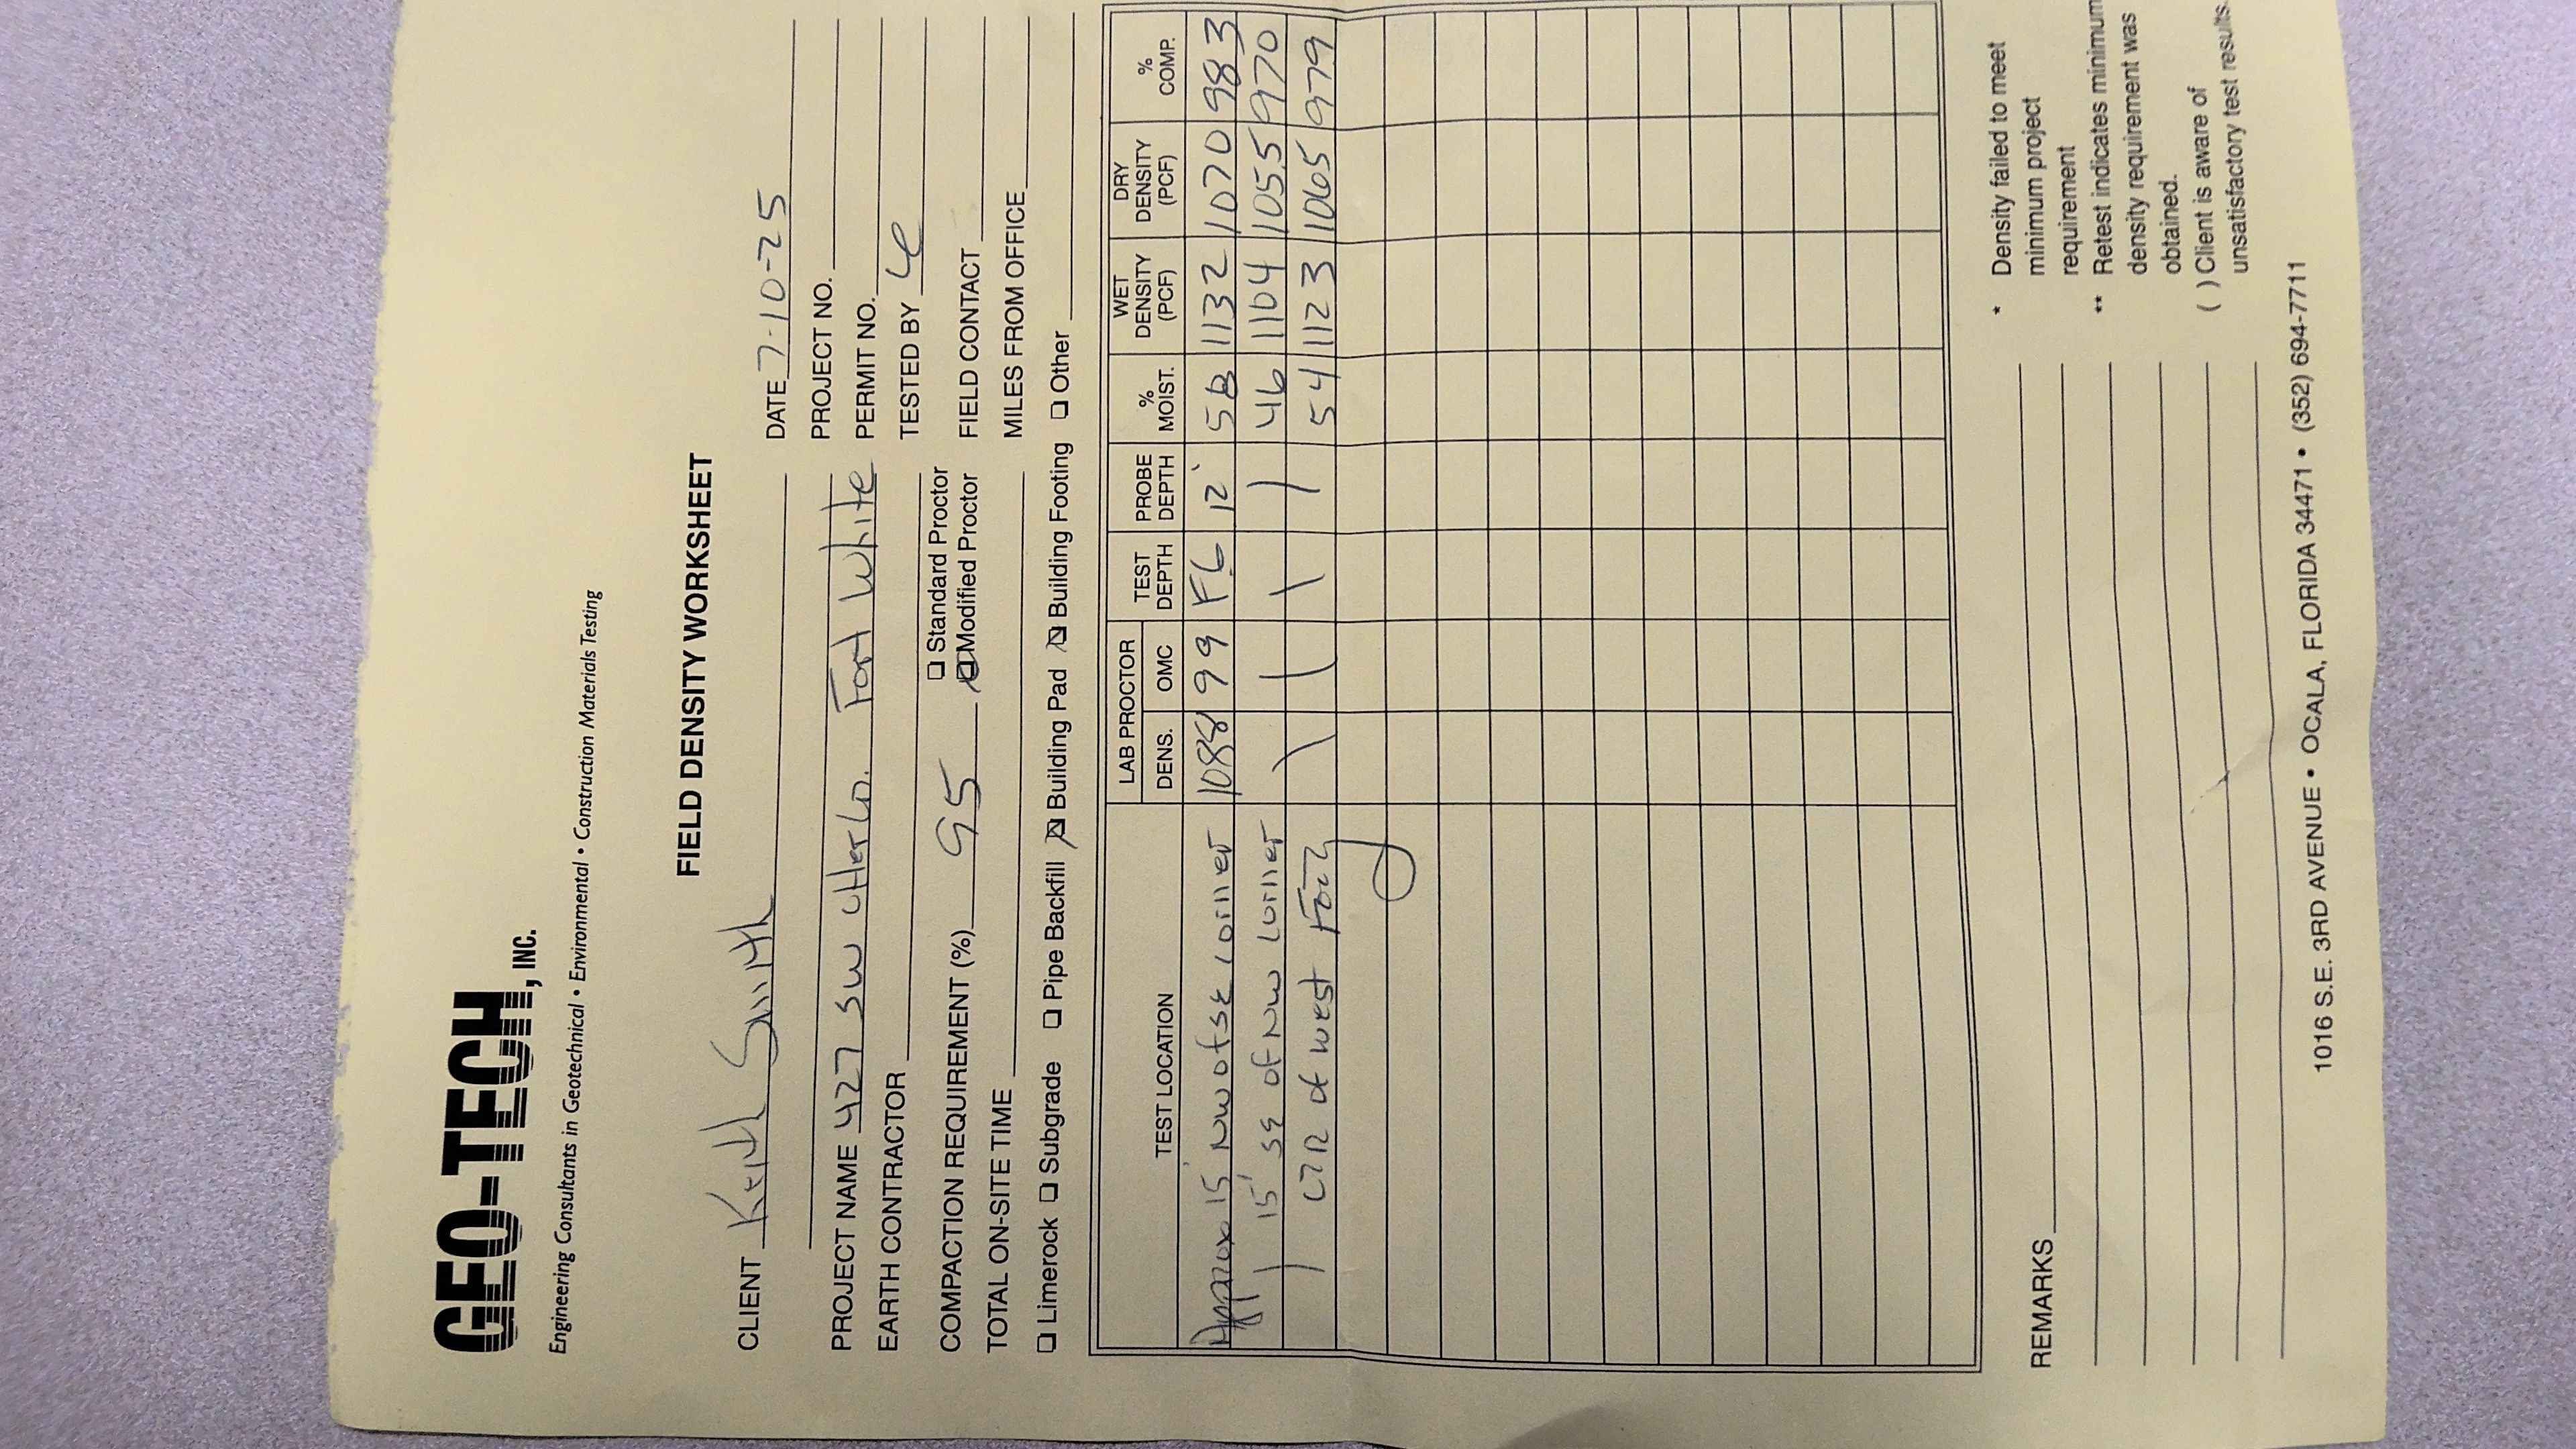 GEO-TECH, INC.
Engineering Consultants in Geotechnical • Environmental • Construction Materials Testing
FIELD DENSITY WORKSHEET
CLIENT Keith Smith DATE 7-10-25
PROJECT NO.
PROJECT NAME 427 SW Fort White PERMIT NO.
EARTH CONTRACTOR TESTED BY
COMPACTION REQUIREMENT (%) 95 Standard Proctor
Modified Proctor FIELD CONTACT
TOTAL ON-SITE TIME MILES FROM OFFICE
Limerock Subgrade Pipe Backfill Building Pad Building Footing Other
TEST LOCATION LAB PROCTOR DENS. OMC TEST DEPTH PROBE DEPTH % MOIST. WET DENSITY (PCF) DRY DENSITY (PCF) % COMP.
Approx 15' NW of SE corner 1088 99 F.G 12" 58 1132 1070 983
15' SE of NW corner 46 1104 1055 970
CTR of west 54 1123 1065 979
REMARKS
* Density failed to meet
minimum project
requirement
** Retest indicates minimum
density requirement was
obtained.
( ) Client is aware of
unsatisfactory test results.
1016 S.E. 3RD AVENUE • OCALA, FLORIDA 34471 • (352) 694-7711